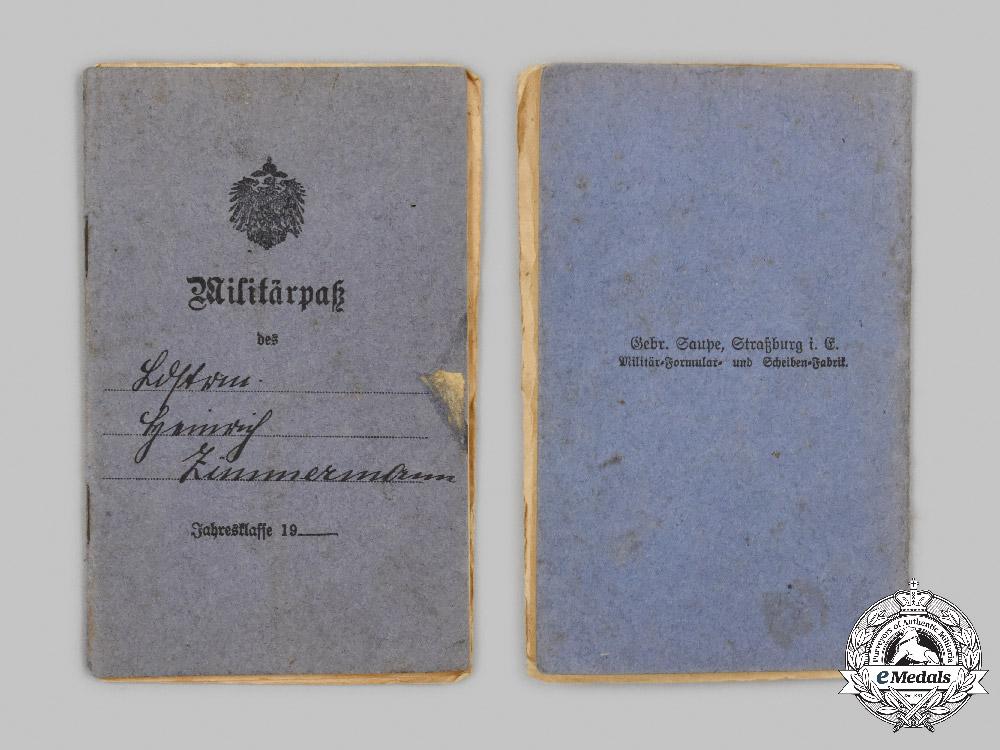 Militärpaß
des
Ldstrm.
Heinrich
Zimmermann
Jahresklasse 19
Gebr. Saupe, Straßburg i. E.
Militär-Formular- und Scheiben-Fabrik.
Purveyors of Authentic Militaria
eMedals